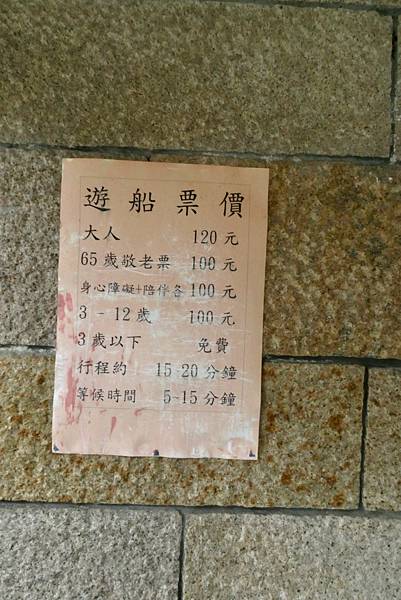 遊船票價
大人 120元
65歲敬老票 100元
身心障礙+陪伴各100元
3-12歲 100元
3歲以下 免費
行程約 15-20分鐘
等候時間 5-15分鐘